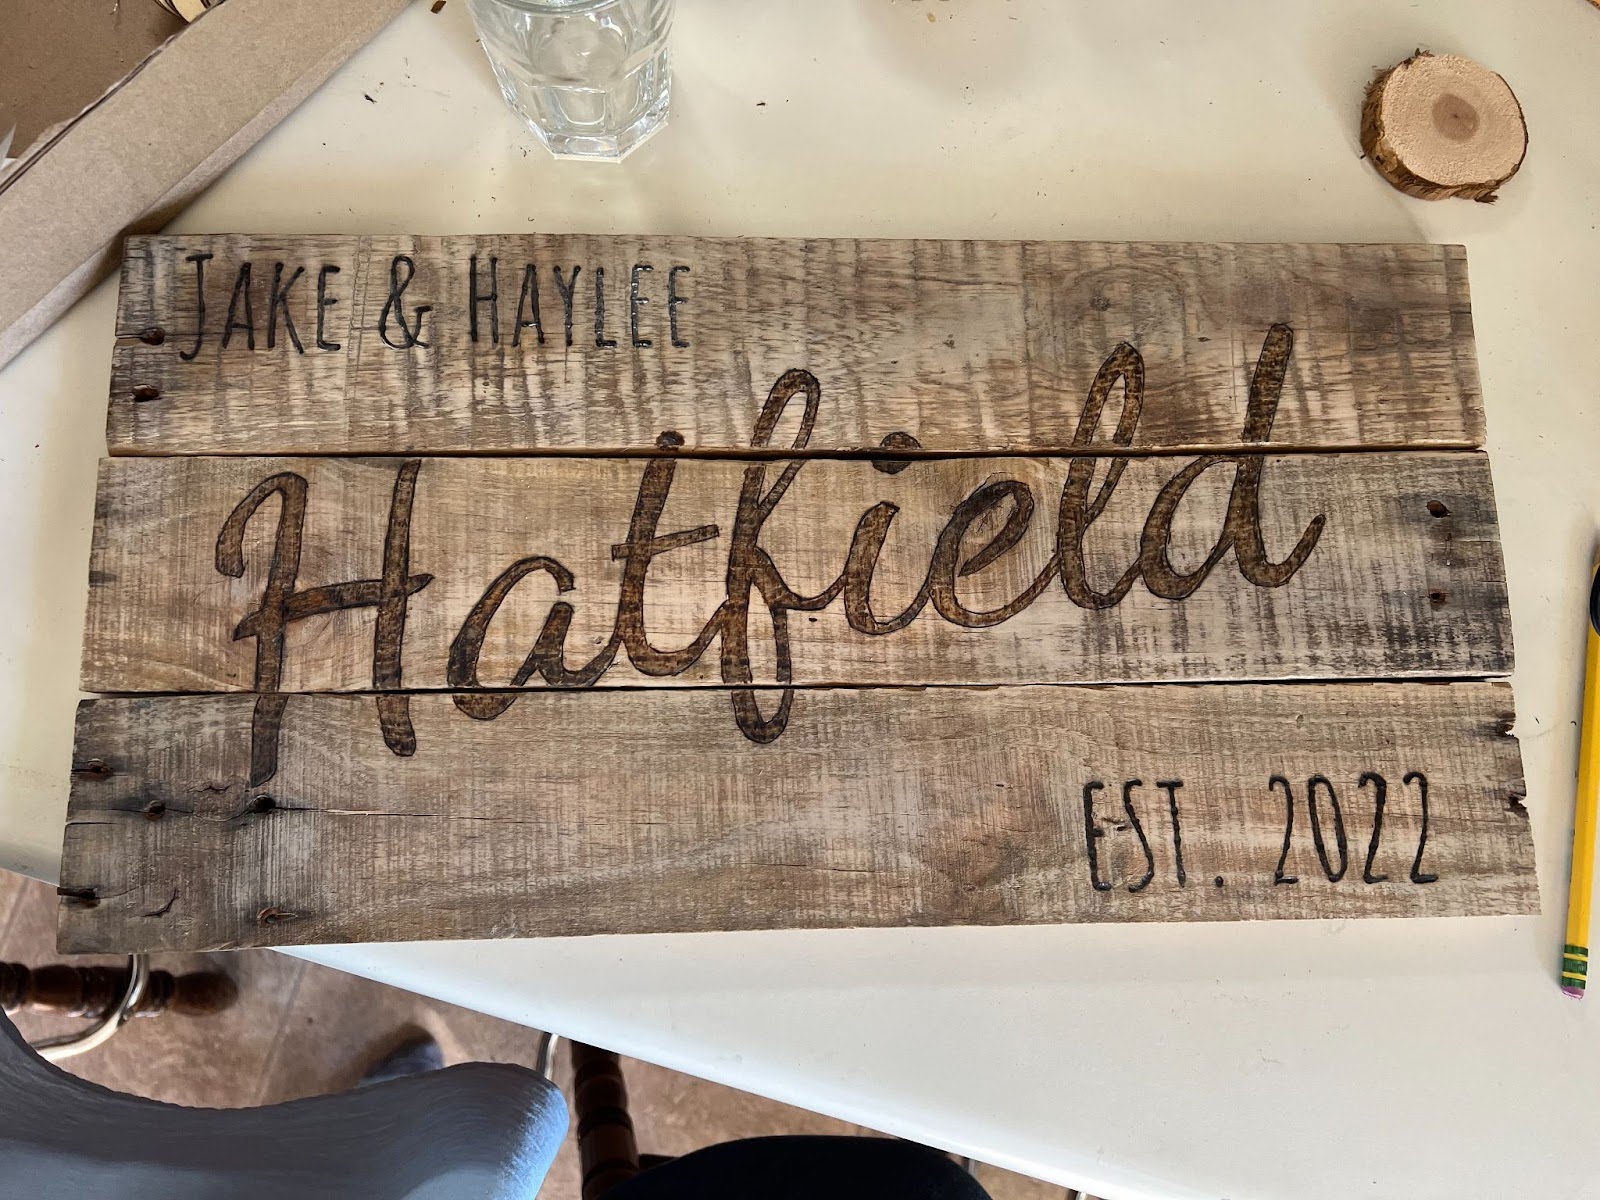 JAKE & HAYLEE
Hatfield
EST. 2022